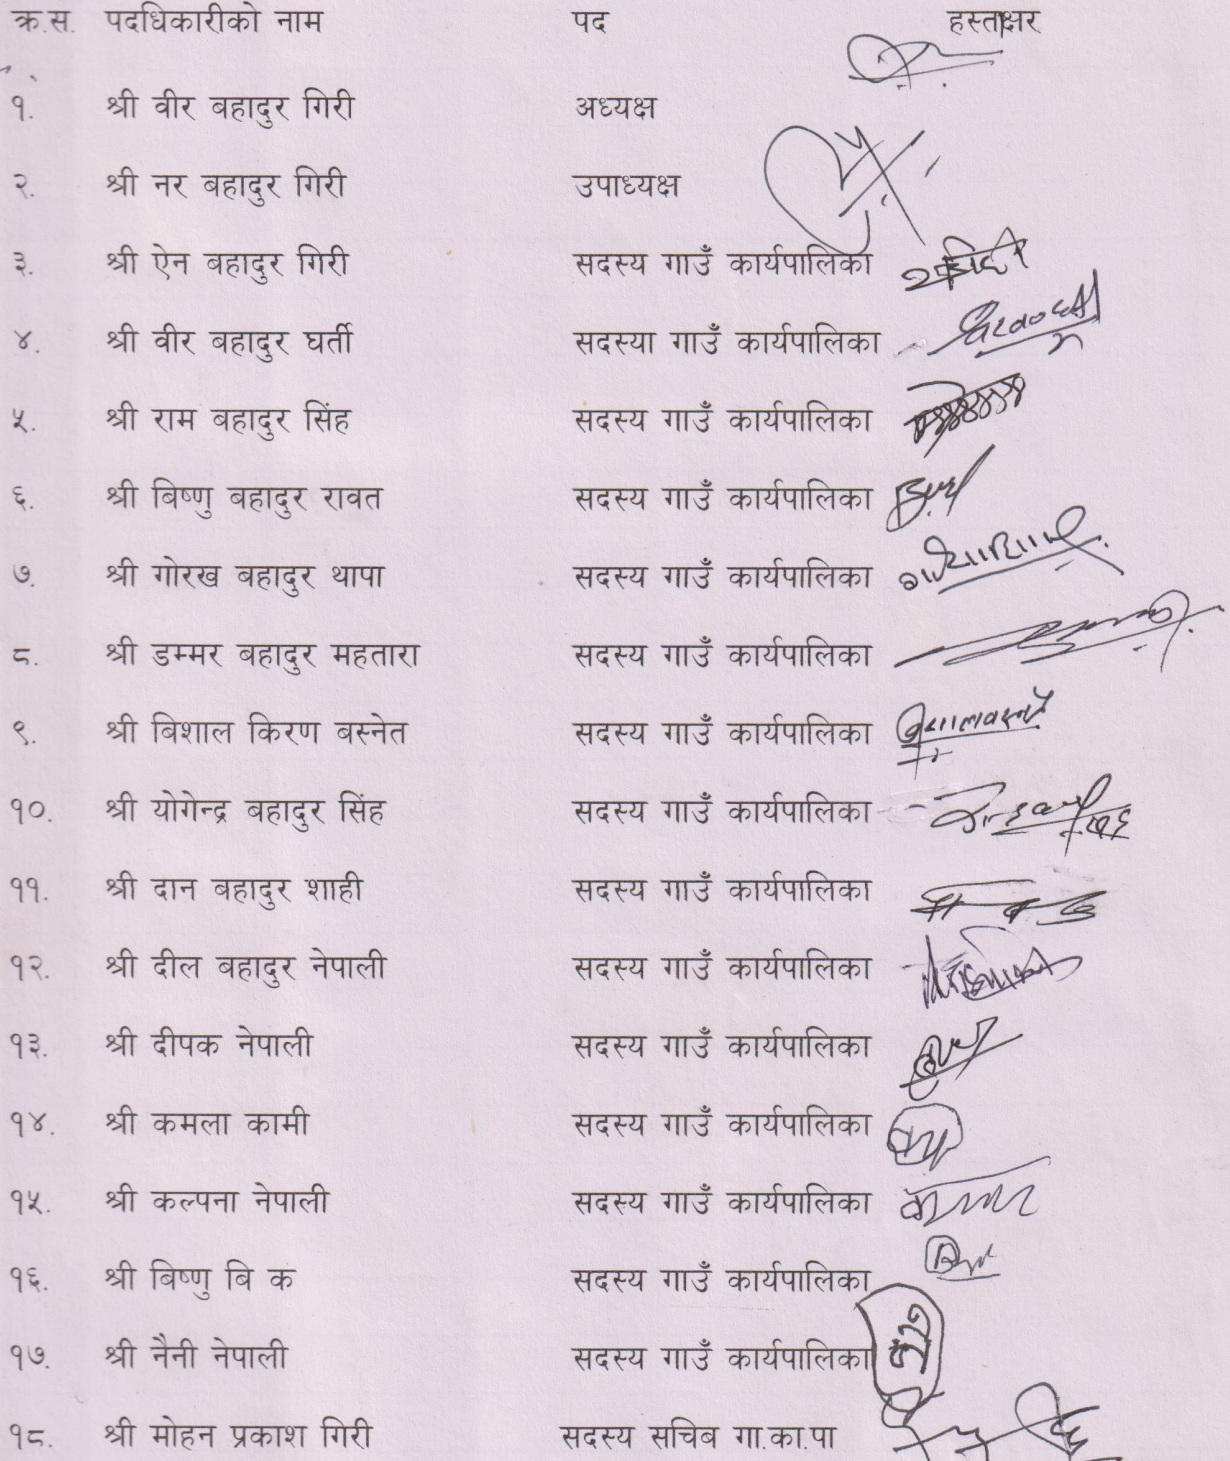 क्र.स. पदधिकारीको नाम पद हस्ताक्षर
१. श्री वीर बहादुर गिरी अध्यक्ष
२. श्री नर बहादुर गिरी उपाध्यक्ष
३. श्री ऐन बहादुर गिरी सदस्य गाउँ कार्यपालिका
४. श्री वीर बहादुर घर्ती सदस्या गाउँ कार्यपालिका
५. श्री राम बहादुर सिंह सदस्य गाउँ कार्यपालिका
६. श्री बिष्णु बहादुर रावत सदस्य गाउँ कार्यपालिका
७. श्री गोरख बहादुर थापा सदस्य गाउँ कार्यपालिका
८. श्री डम्मर बहादुर महतारा सदस्य गाउँ कार्यपालिका
९. श्री बिशाल किरण बस्नेत सदस्य गाउँ कार्यपालिका
१०. श्री योगेन्द्र बहादुर सिंह सदस्य गाउँ कार्यपालिका
११. श्री दान बहादुर शाही सदस्य गाउँ कार्यपालिका
१२. श्री दील बहादुर नेपाली सदस्य गाउँ कार्यपालिका
१३. श्री दीपक नेपाली सदस्य गाउँ कार्यपालिका
१४. श्री कमला कामी सदस्य गाउँ कार्यपालिका
१५. श्री कल्पना नेपाली सदस्य गाउँ कार्यपालिका
१६. श्री बिष्णु बि क सदस्य गाउँ कार्यपालिका
१७. श्री नैनी नेपाली सदस्य गाउँ कार्यपालिका
१८. श्री मोहन प्रकाश गिरी सदस्य सचिब गा.का.पा